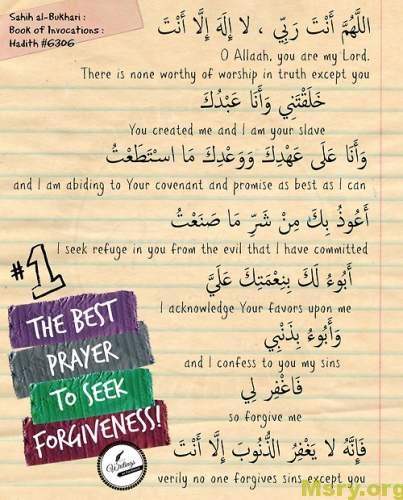 Sahih al-Bukhari :
Book of Invocations :
Hadith #6306
اللَّهُمَّ أَنْتَ رَبِّي ، لا إِلَهَ إِلَّا أَنْتَ
O Allaah, you are my Lord.
There is none worthy of worship in truth except you
خَلَقْتَنِي وَأَنَا عَبْدُكَ
You created me and I am your slave
وَأَنَا عَلَى عَهْدِكَ وَوَعْدِكَ مَا اسْتَطَعْتُ
and I am abiding to Your covenant and promise as best as I can
أَعُوذُ بِكَ مِنْ شَرِّ مَا صَنَعْتُ
I seek refuge in you from the evil that I have committed
أَبُوءُ لَكَ بِنِعْمَتِكَ عَلَيَّ
I acknowledge Your favors upon me
وَأَبُوءُ بِذَنْبِي
and I confess to you my sins
فَاغْفِر لِي
so forgive me
فَإِنَّهُ لا يَغْفِرُ الذُّنُوبَ إِلَّا أَنْتَ
verily no one forgives sins except you
#1
THE BEST
PRAYER
TO SEEK
FORGIVENESS!
Writings
Msry.org